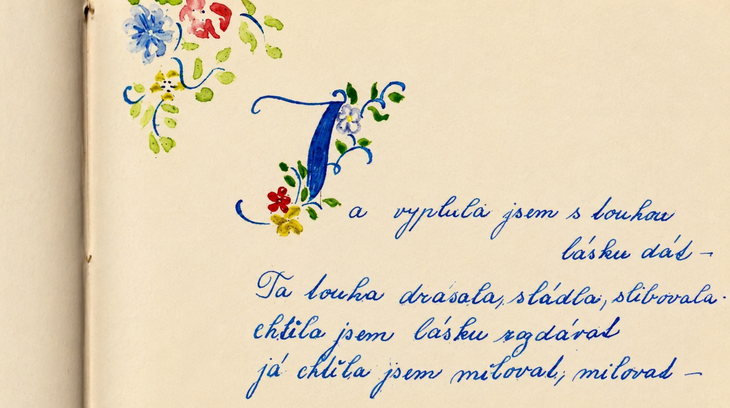 Ja vyplula jsem s touhou
lásku dát –
Ta touha drásala, sládla, slibovala.
chtěla jsem lásku rozdávat
já chtěla jsem milovat, milovat –